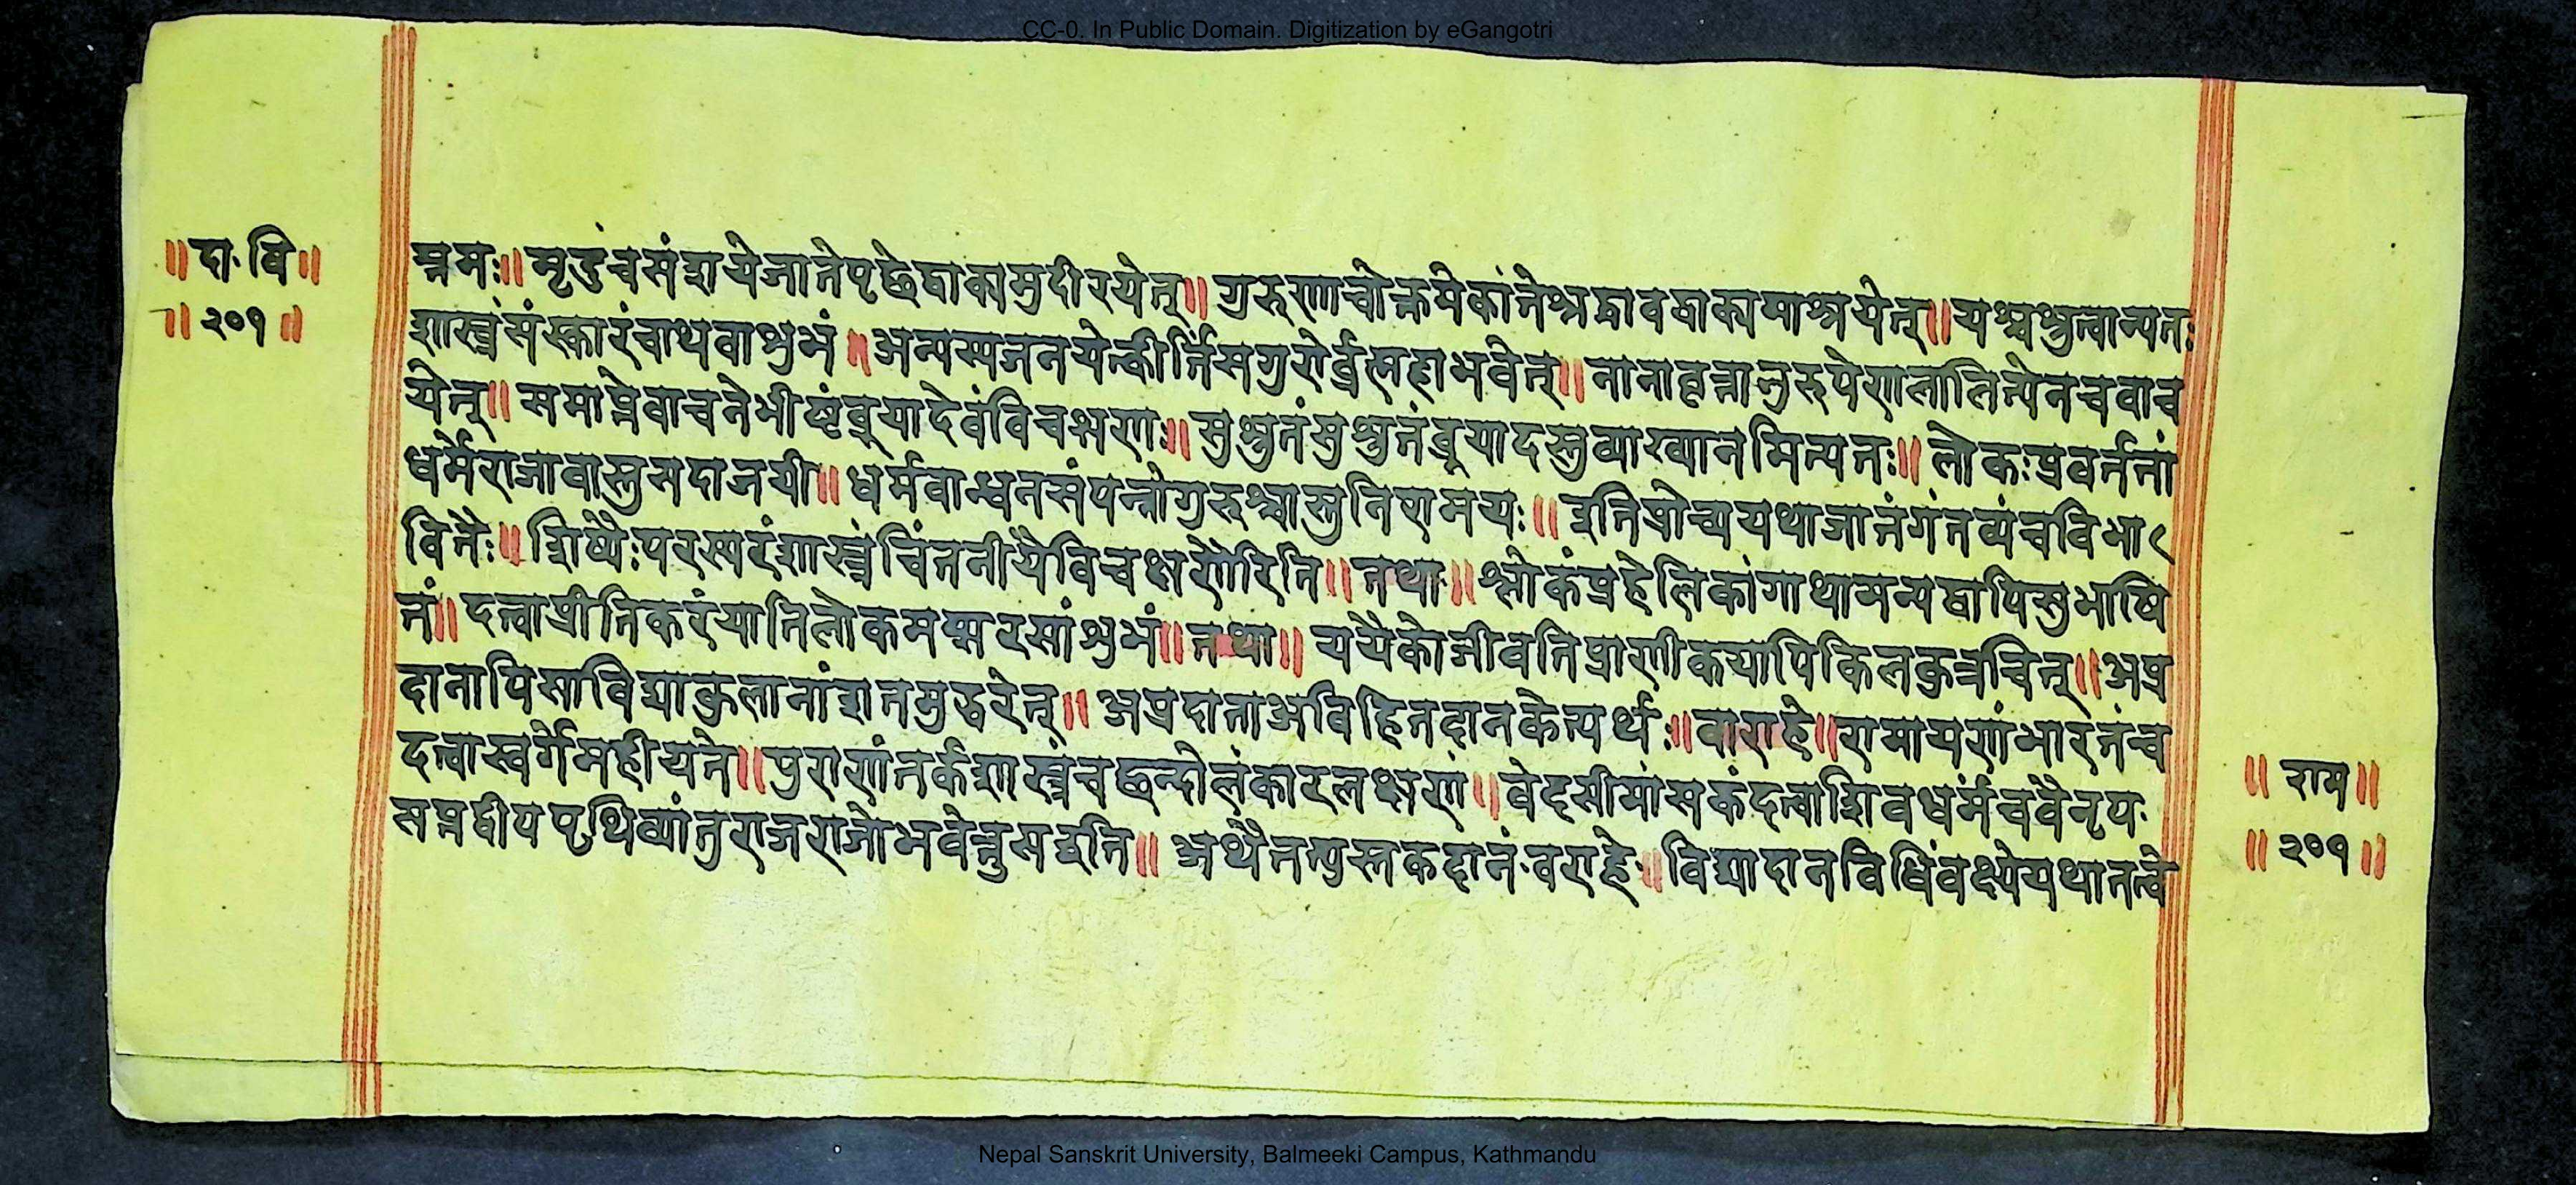 CC-0. In Public Domain. Digitization by eGangotri
॥दा॰वि॥
॥२०१॥
म्नमः॥मृदुंचसंशयेजातेपृछेद्वाक्यमुदीरयेत्॥गुरुणाचोक्तमेकांतेश्रद्धावद्वाक्यमाश्रयेत्॥यश्चश्रुत्वान्यतः
शास्त्रंसंस्कारंचाथवाशुभं॥अन्यस्यजनयेत्कीर्तिंसगुरोर्ब्रह्महाभवेत्॥नानावृत्तानुरूपेणलालित्येनचवाच
येत्॥समाप्तेवाचनेभीष्टंब्रूयादेवंविचक्षणः॥सुश्रुतंसुश्रुतंब्रूयादस्तुव्याख्यानमित्यतः॥लोकःप्रवर्तनां
धर्मेराजावास्तुसदाजयी॥धर्मवान्धनसंपन्नोगुरुश्चास्तुनिरामयः॥इतिप्रोच्ययथाजातंगंतव्यंचविभा
वितैः॥शिष्यैःपरस्परंशास्त्रंचिंतनीयंविचक्षणैरिति॥तथा॥श्लोकंप्रहेलिकांगाथामन्यद्वापिसुभाषि
तं॥दत्वाप्रीतिकरंयातिलोकमप्सरसांशुभं॥तथा॥यद्येकोजीवतिप्राणीकयापिकिलकुत्रचित्॥अप्र
दानापिसाविद्याकुलानांशतमुद्धरेत्॥अप्रदाताअविहितदानकेत्यर्थः॥वाराहे॥रामायणंभारतंच
दत्वास्वर्गेमहीयते॥पुराणंतर्कशास्त्रंचछन्दोलंकारलक्षणं॥वेदमीमांसकंदत्वाशिवधर्मंचवैनृप॰
सप्तद्वीपपृथिव्यांतुराजराजोभवेत्तुसइति॥अथैतत्पुस्तकदानं॰वराहे॰॥विद्यादानविधिंवक्ष्येयथातत्वे
॥राम॥
॥२०१॥
Nepal Sanskrit University, Balmeeki Campus, Kathmandu